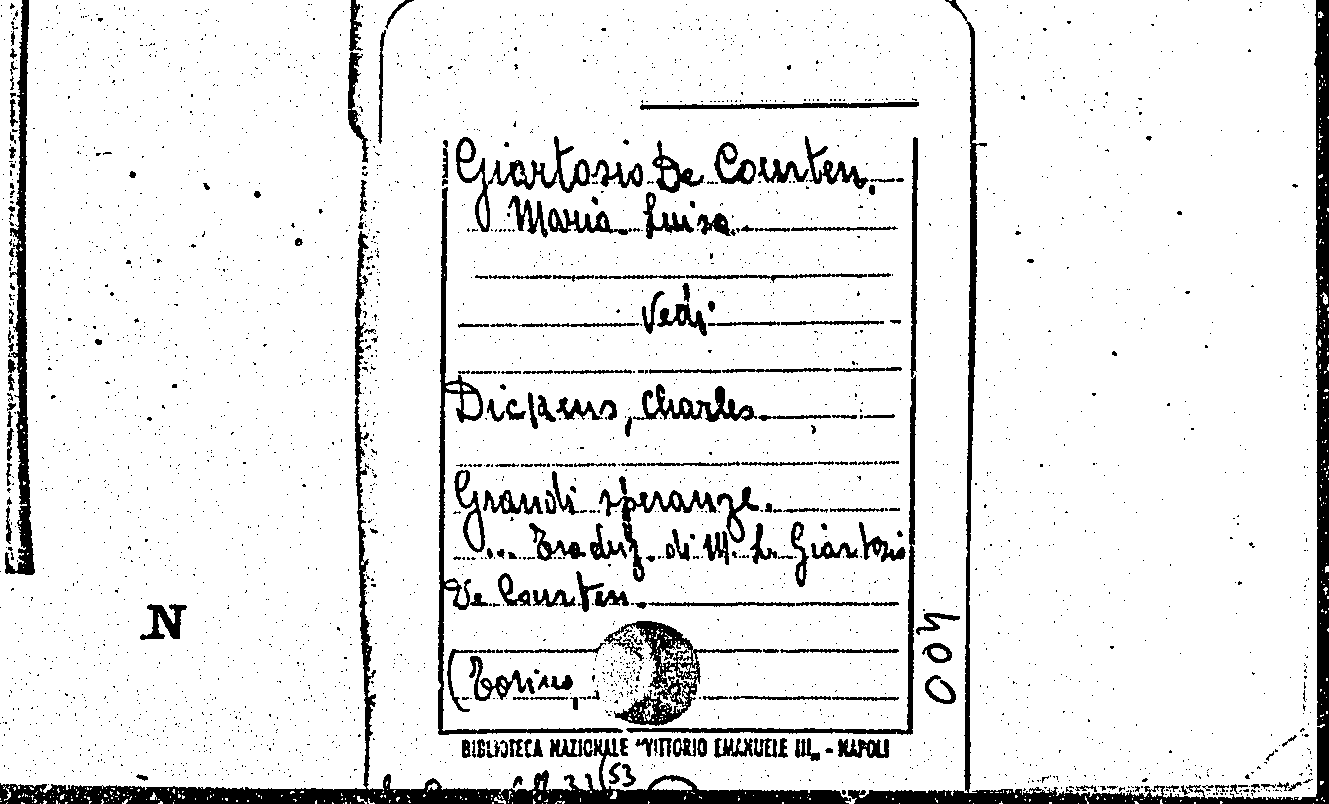 Giartosio De Courten.
Maria Luisa.
Vedi
Dickens, Charles.
Grandi speranze.
... Traduz. di M. L. Giartosio
De Courten.
(Torino,
BIBLIOTECA NAZIONALE "VITTORIO EMANUELE III„ - NAPOLI
400
N